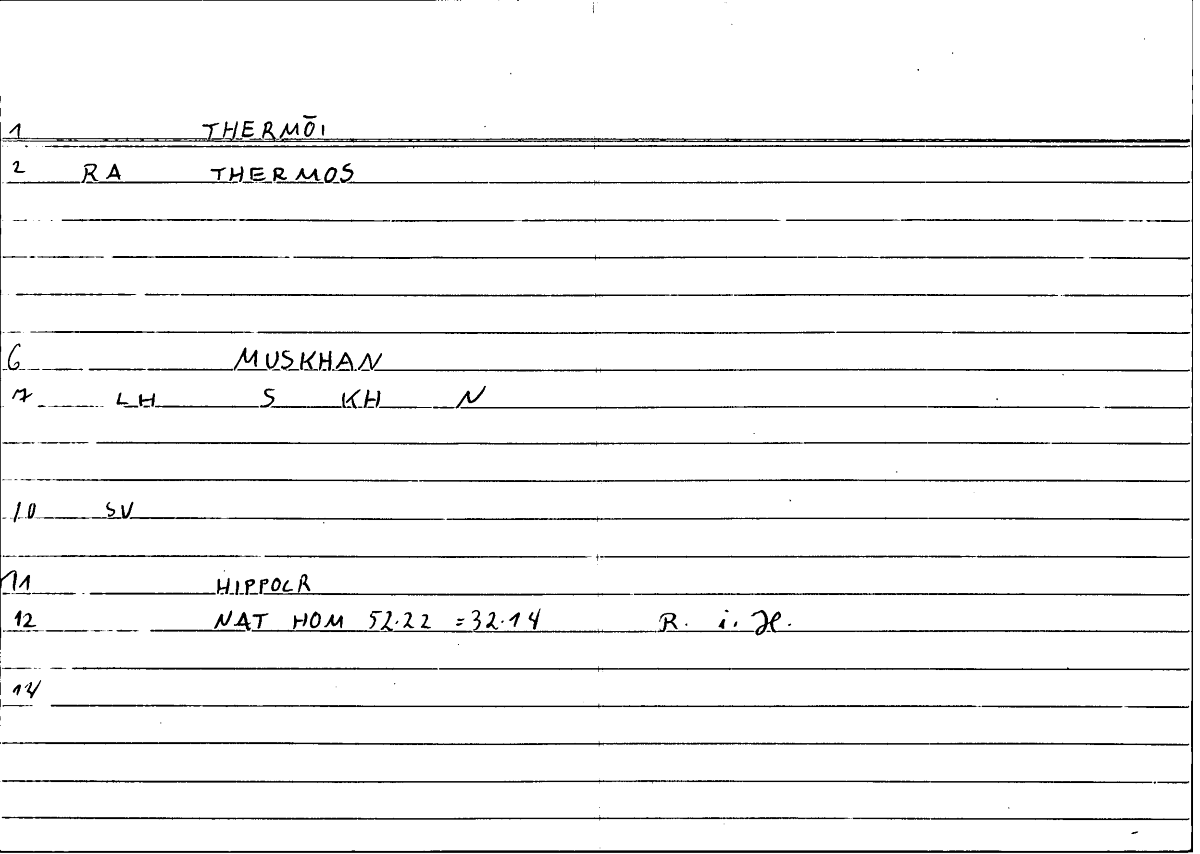 1 THERMŌI
2 RA THERMOS
6 MUSKHAN
7 LH S KH N
10 SV
11 HIPPOCR
12 NAT HOM 52.22 = 32.14 R. i. H.
14